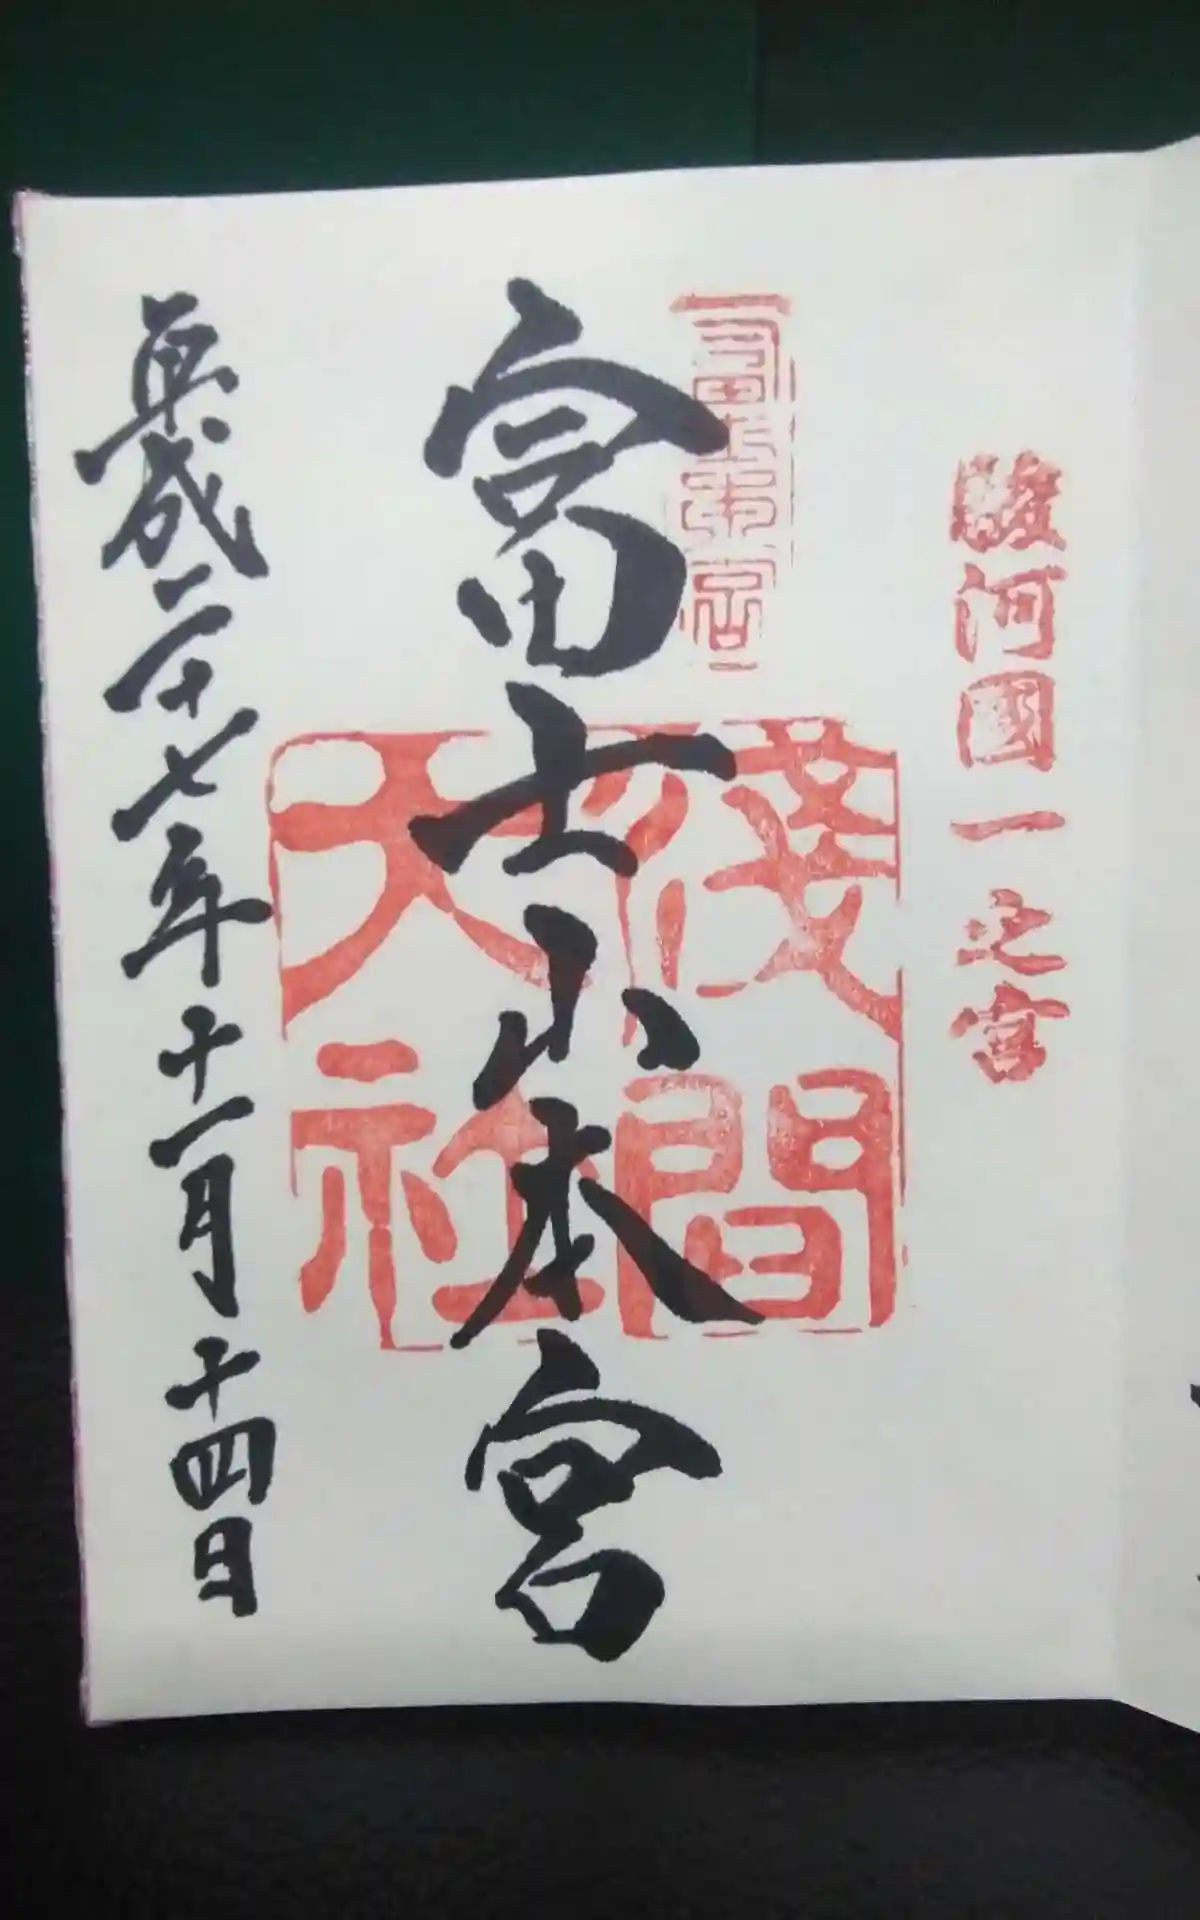 駿河國一之宮
富士本宮
淺間
大社
富士山本宮
平成二十七年十一月十四日